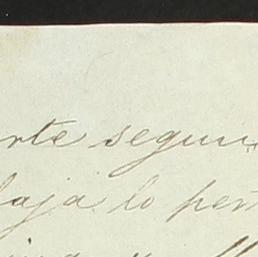 rte segun
baja lo pert